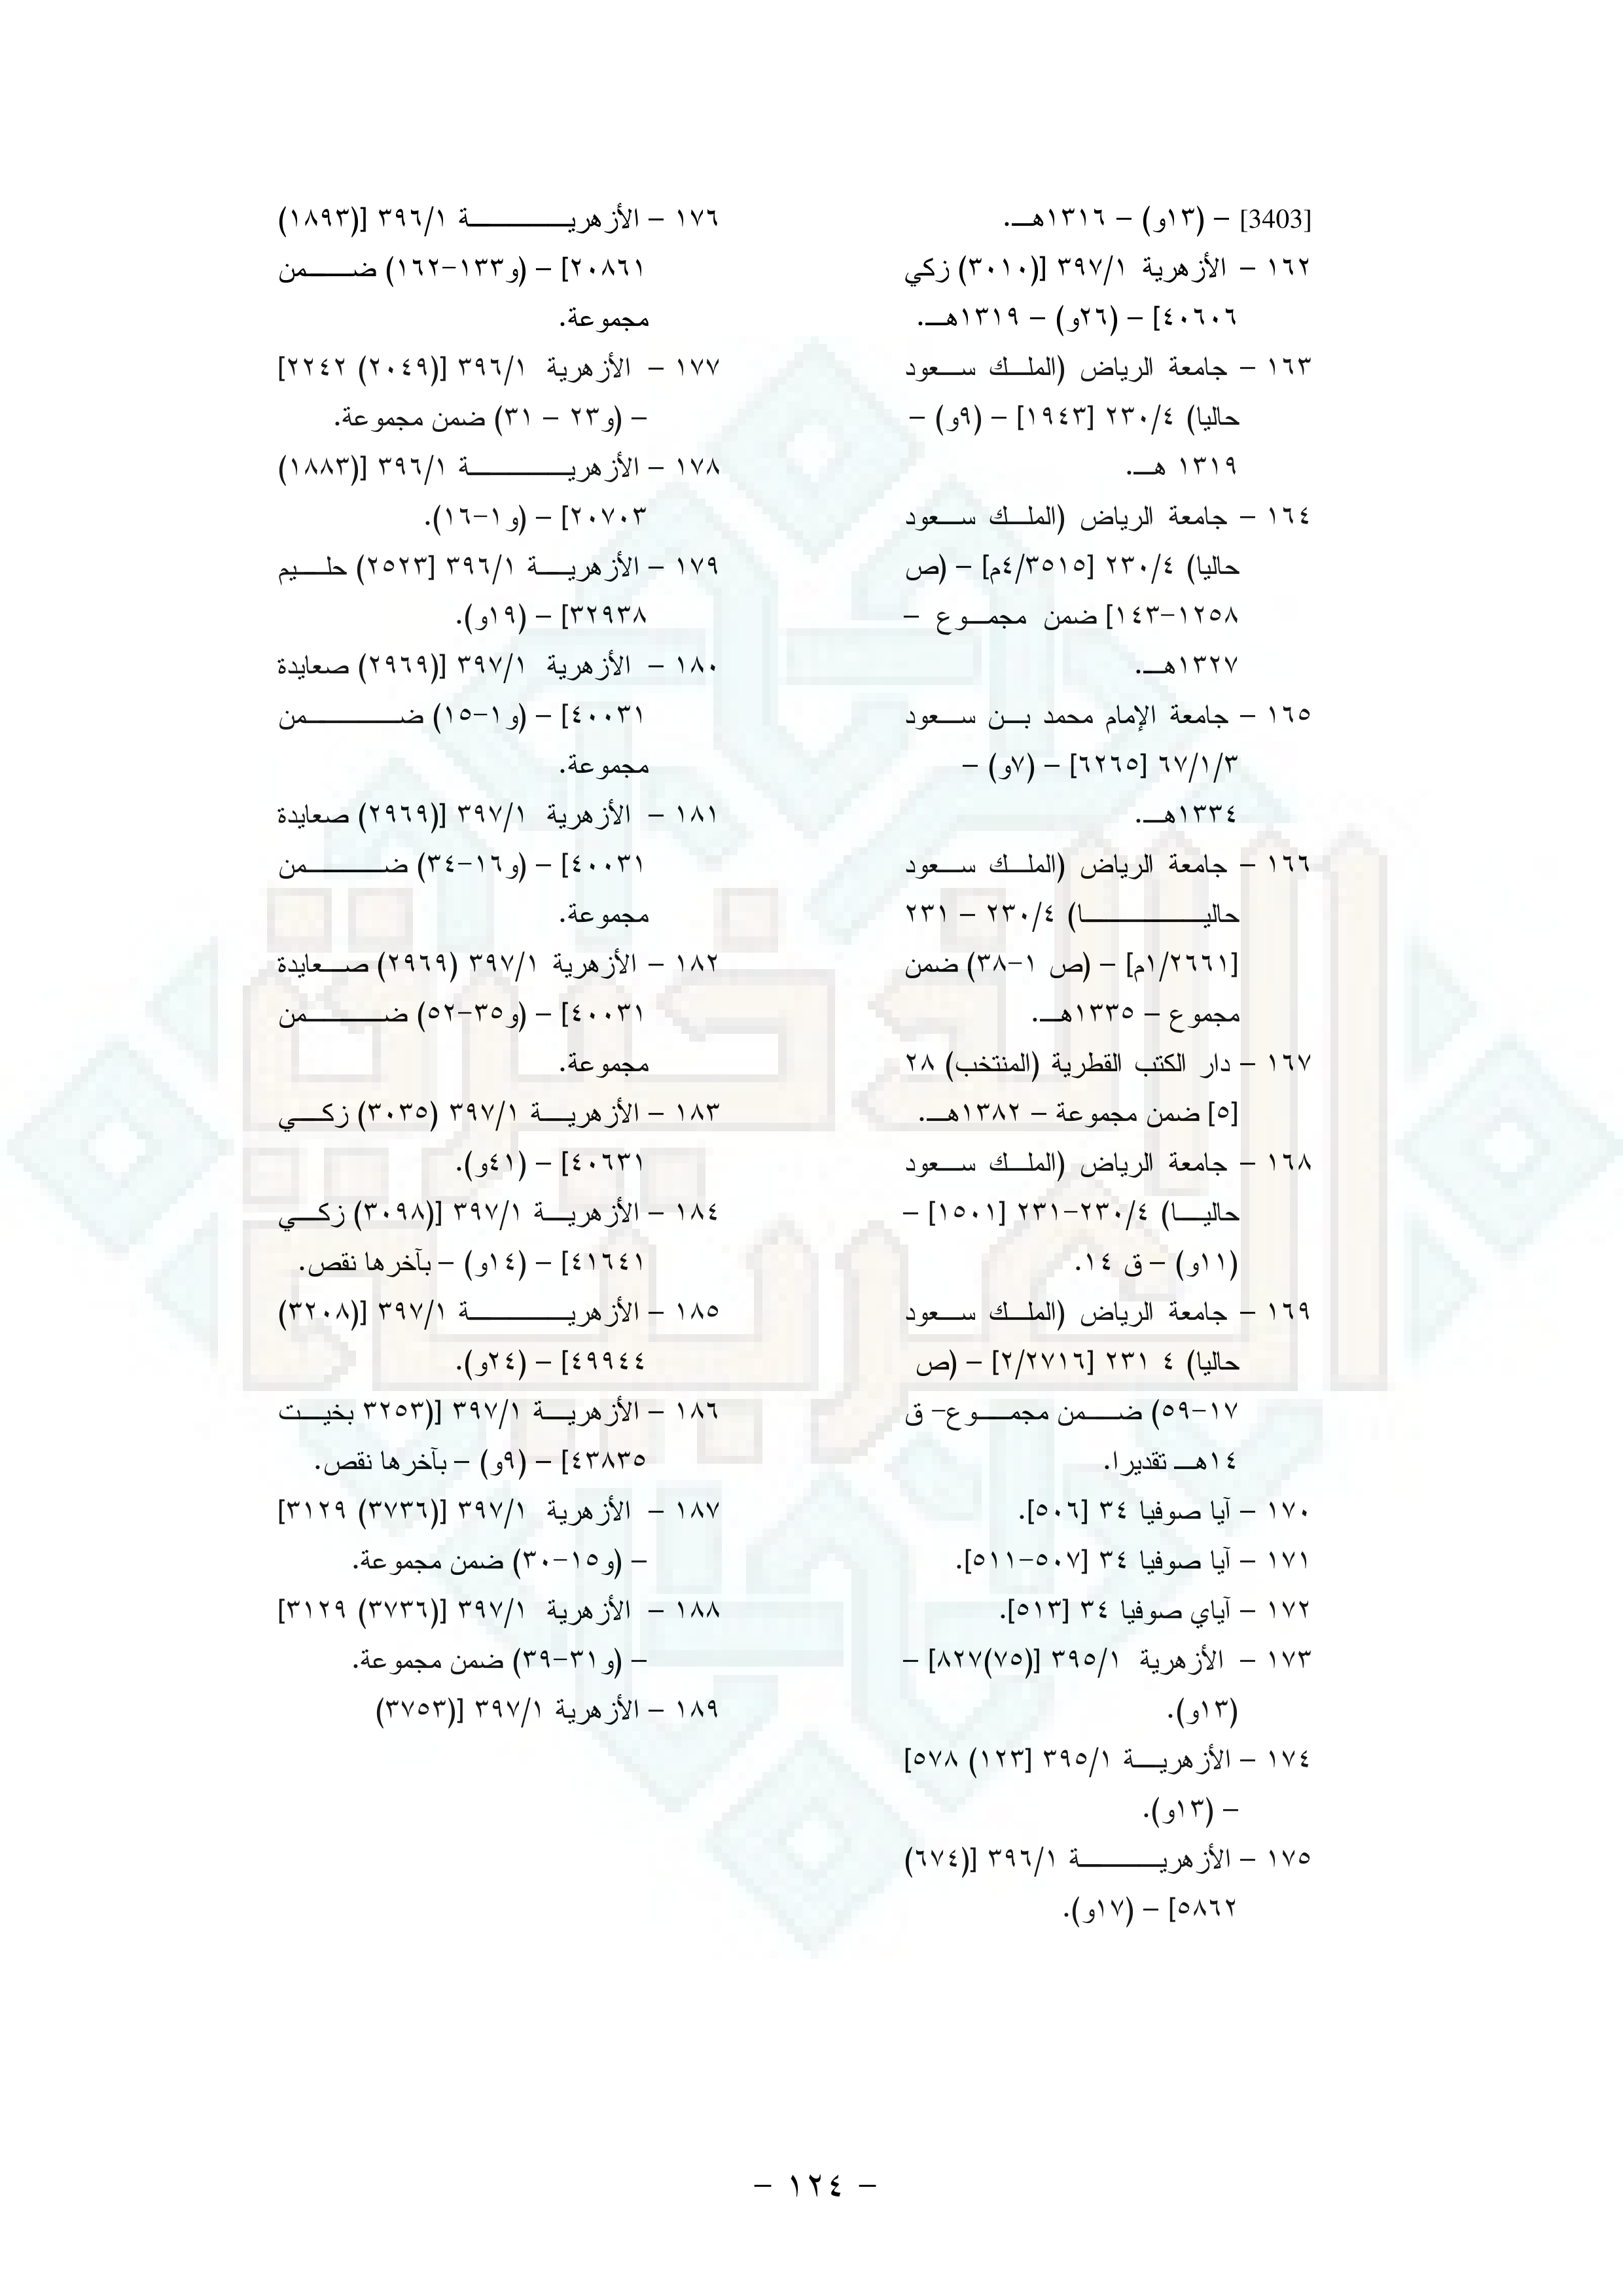 [3403] – (١٣و) – ١٣١٦هـ.
١٦٢ – الأزهرية ٣٩٧/١ [(٣٠١٠) زكي
٤٠٦٠٦] – (٢٦و) – ١٣١٩هـ.
١٦٣ – جامعة الرياض (الملك سعود
حاليا) ٢٣٠/٤ [١٩٤٣] – (٩و) –
١٣١٩ هـ.
١٦٤ – جامعة الرياض (الملك سعود
حاليا) ٢٣٠/٤ [٤/٣٥١٥م] – (ص
١٢٥٨–١٤٣] ضمن مجموع –
١٣٢٧هـ.
١٦٥ – جامعة الإمام محمد بن سعود
٦٧/١/٣ [٦٢٦٥] – (٧و) –
١٣٣٤هـ.
١٦٦ – جامعة الرياض (الملك سعود
حاليا) ٢٣٠/٤ – ٢٣١
[١/٢٦٦١م] – (ص ١–٣٨) ضمن
مجموع – ١٣٣٥هـ.
١٦٧ – دار الكتب القطرية (المنتخب) ٢٨
[٥] ضمن مجموعة – ١٣٨٢هـ.
١٦٨ – جامعة الرياض (الملك سعود
حاليا) ٢٣٠/٤–٢٣١ [١٥٠١] –
(١١و) – ق ١٤.
١٦٩ – جامعة الرياض (الملك سعود
حاليا) ٤ ٢٣١ [٢/٢٧١٦] – (ص
١٧–٥٩) ضمن مجموع– ق
١٤هـ تقديرا.
١٧٠ – آيا صوفيا ٣٤ [٥٠٦].
١٧١ – آيا صوفيا ٣٤ [٥٠٧–٥١١].
١٧٢ – آياي صوفيا ٣٤ [٥١٣].
١٧٣ – الأزهرية ٣٩٥/١ [(٧٥)٨٢٧] –
(١٣و).
١٧٤ – الأزهرية ٣٩٥/١ [١٢٣) ٥٧٨]
– (١٣و).
١٧٥ – الأزهرية ٣٩٦/١ [(٦٧٤)
٥٨٦٢] – (١٧و).
١٧٦ – الأزهرية ٣٩٦/١ [(١٨٩٣)
٢٠٨٦١] – (و١٣٣–١٦٢) ضمن
مجموعة.
١٧٧ – الأزهرية ٣٩٦/١ [(٢٠٤٩) ٢٢٤٢]
– (و٢٣ – ٣١) ضمن مجموعة.
١٧٨ – الأزهرية ٣٩٦/١ [(١٨٨٣)
٢٠٧٠٣] – (و١–١٦).
١٧٩ – الأزهرية ٣٩٦/١ [٢٥٢٣) حليم
٣٢٩٣٨] – (١٩و).
١٨٠ – الأزهرية ٣٩٧/١ [(٢٩٦٩) صعايدة
٤٠٠٣١] – (و١–١٥) ضمن
مجموعة.
١٨١ – الأزهرية ٣٩٧/١ [(٢٩٦٩) صعايدة
٤٠٠٣١] – (و١٦–٣٤) ضمن
مجموعة.
١٨٢ – الأزهرية ٣٩٧/١ (٢٩٦٩) صعايدة
٤٠٠٣١] – (و٣٥–٥٢) ضمن
مجموعة.
١٨٣ – الأزهرية ٣٩٧/١ (٣٠٣٥) زكي
٤٠٦٣١] – (٤١و).
١٨٤ – الأزهرية ٣٩٧/١ [(٣٠٩٨) زكي
٤١٦٤١] – (١٤و) – بآخرها نقص.
١٨٥ – الأزهرية ٣٩٧/١ [(٣٢٠٨)
٤٩٩٤٤] – (٢٤و).
١٨٦ – الأزهرية ٣٩٧/١ [(٣٢٥٣ بخيت
٤٣٨٣٥] – (٩و) – بآخرها نقص.
١٨٧ – الأزهرية ٣٩٧/١ [(٣٧٣٦) ٣١٢٩]
– (و١٥–٣٠) ضمن مجموعة.
١٨٨ – الأزهرية ٣٩٧/١ [(٣٧٣٦) ٣١٢٩]
– (و٣١–٣٩) ضمن مجموعة.
١٨٩ – الأزهرية ٣٩٧/١ [(٣٧٥٣)
– ١٢٤ –
الذخيرة
العربية